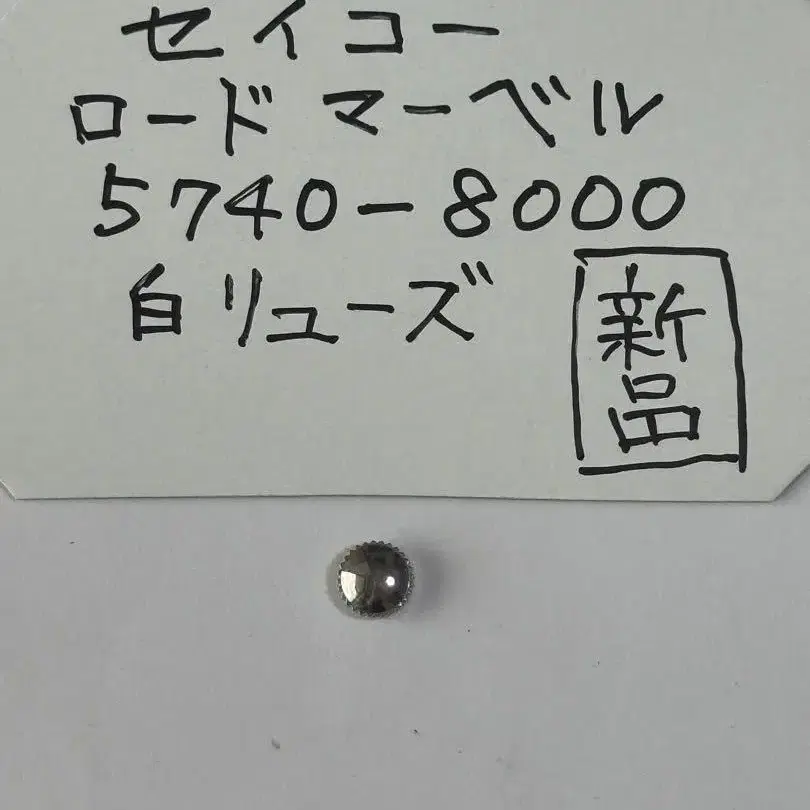 セイコー
ロードマーベル
5740-8000
白リューズ
新品